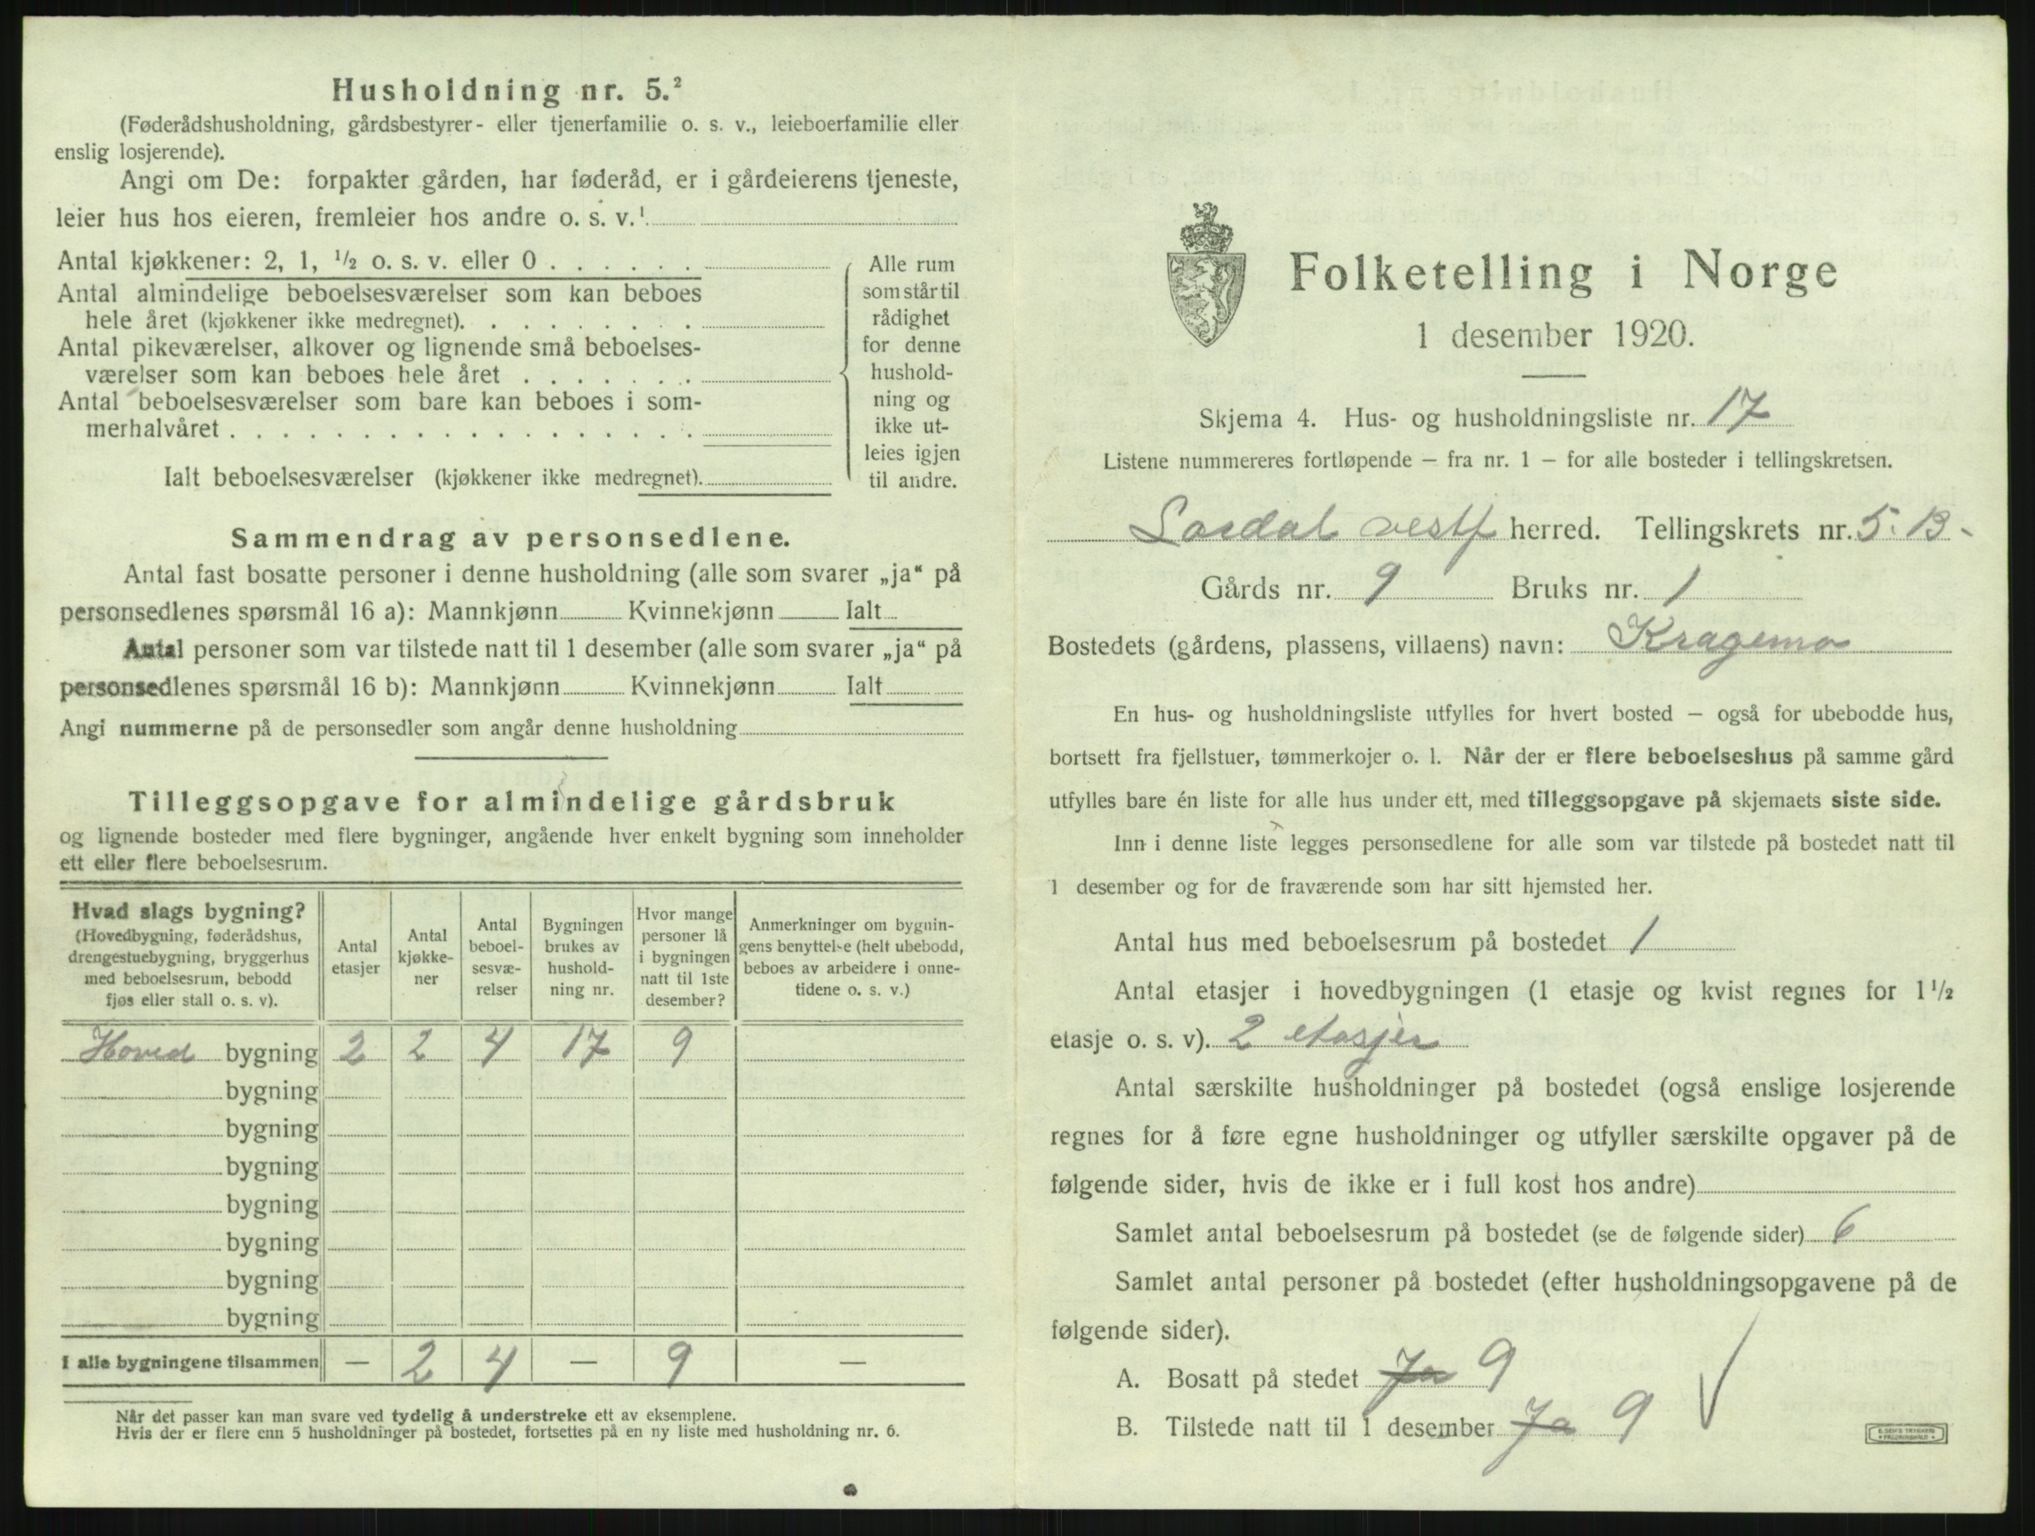 Husholdning nr. 5.²
(Føderådshusholdning, gårdsbestyrer- eller tjenerfamilie o. s. v., leieboerfamilie eller
enslig losjerende).
Angi om De: forpakter gården, har føderåd, er i gårdeierens tjeneste,
leier hus hos eieren, fremleier hos andre o. s. v.¹
Antal kjøkkener: 2, 1, ¹/₂ o. s. v. eller 0 . . . . . .
Antal almindelige beboelsesværelser som kan beboes
hele året (kjøkkener ikke medregnet). . . . . . . . .
Antal pikeværelser, alkover og lignende små beboelses-
værelser som kan beboes hele året . . . . . . .
Antal beboelsesværelser som bare kan beboes i som-
merhalvåret . . . . . . . . . . . . . . . . . .
Ialt beboelsesværelser (kjøkkener ikke medregnet).
Alle rum
som står til
rådighet
for denne
hushold-
ning og
ikke ut-
leies igjen
til andre.
Sammendrag av personsedlene.
Antal fast bosatte personer i denne husholdning (alle som svarer „ja“ på
personsedlenes spørsmål 16 a): Mannkjønn Kvinnekjønn Ialt
Antal personer som var tilstede natt til 1 desember (alle som svarer „ja“ på
personsedlenes spørsmål 16 b): Mannkjønn Kvinnekjønn Ialt
Angi nummerne på de personsedler som angår denne husholdning
Tilleggsopgave for almindelige gårdsbruk
og lignende bosteder med flere bygninger, angående hver enkelt bygning som inneholder
ett eller flere beboelsesrum.
Hvad slags bygning?
(Hovedbygning, føderådshus,
drengestuebygning, bryggerhus
med beboelsesrum, bebodd
fjøs eller stall o. s. v).
Antal
etasjer
Antal
kjøkke-
ner
Antal
beboel-
sesvæ-
relser
Bygningen
brukes av
hushold-
ning nr.
Hvor mange
personer lå
i bygningen
natt til 1ste
desember?
Anmerkninger om bygnin-
gens benyttelse (helt ubebodd,
beboes av arbeidere i onne-
tidene o. s. v.)
Hoved bygning 2 2 4 17 9
bygning
bygning
bygning
bygning
bygning
bygning
bygning
I alle bygningene tilsammen — 2 4 — 9 —
Når det passer kan man svare ved tydelig å understreke ett av eksemplene.
Hvis der er flere enn 5 husholdninger på bostedet, fortsettes på en ny liste med husholdning nr. 6.
Folketelling i Norge
1 desember 1920.
Skjema 4. Hus- og husholdningsliste nr. 17
Listene nummereres fortløpende — fra nr. 1 — for alle bosteder i tellingskretsen.
Lardal vestf herred. Tellingskrets nr. 5. B.
Gårds nr. 9 Bruks nr. 1
Bostedets (gårdens, plassens, villaens) navn: Kragemo
En hus- og husholdningsliste utfylles for hvert bosted — også for ubebodde hus,
bortsett fra fjellstuer, tømmerkojer o. l. Når der er flere beboelseshus på samme gård
utfylles bare én liste for alle hus under ett, med tilleggsopgave på skjemaets siste side.
Inn i denne liste legges personsedlene for alle som var tilstede på bostedet natt til
1 desember og for de fraværende som har sitt hjemsted her.
Antal hus med beboelsesrum på bostedet 1
Antal etasjer i hovedbygningen (1 etasje og kvist regnes for 1 ¹/₂
etasje o. s. v). 2 etasjer
Antal særskilte husholdninger på bostedet (også enslige losjerende
regnes for å føre egne husholdninger og utfyller særskilte opgaver på de
følgende sider, hvis de ikke er i full kost hos andre)
Samlet antal beboelsesrum på bostedet (se de følgende sider) 6
Samlet antal personer på bostedet (efter husholdningsopgavene på de
følgende sider).
A. Bosatt på stedet Ja 9
B. Tilstede natt til 1 desember Ja 9